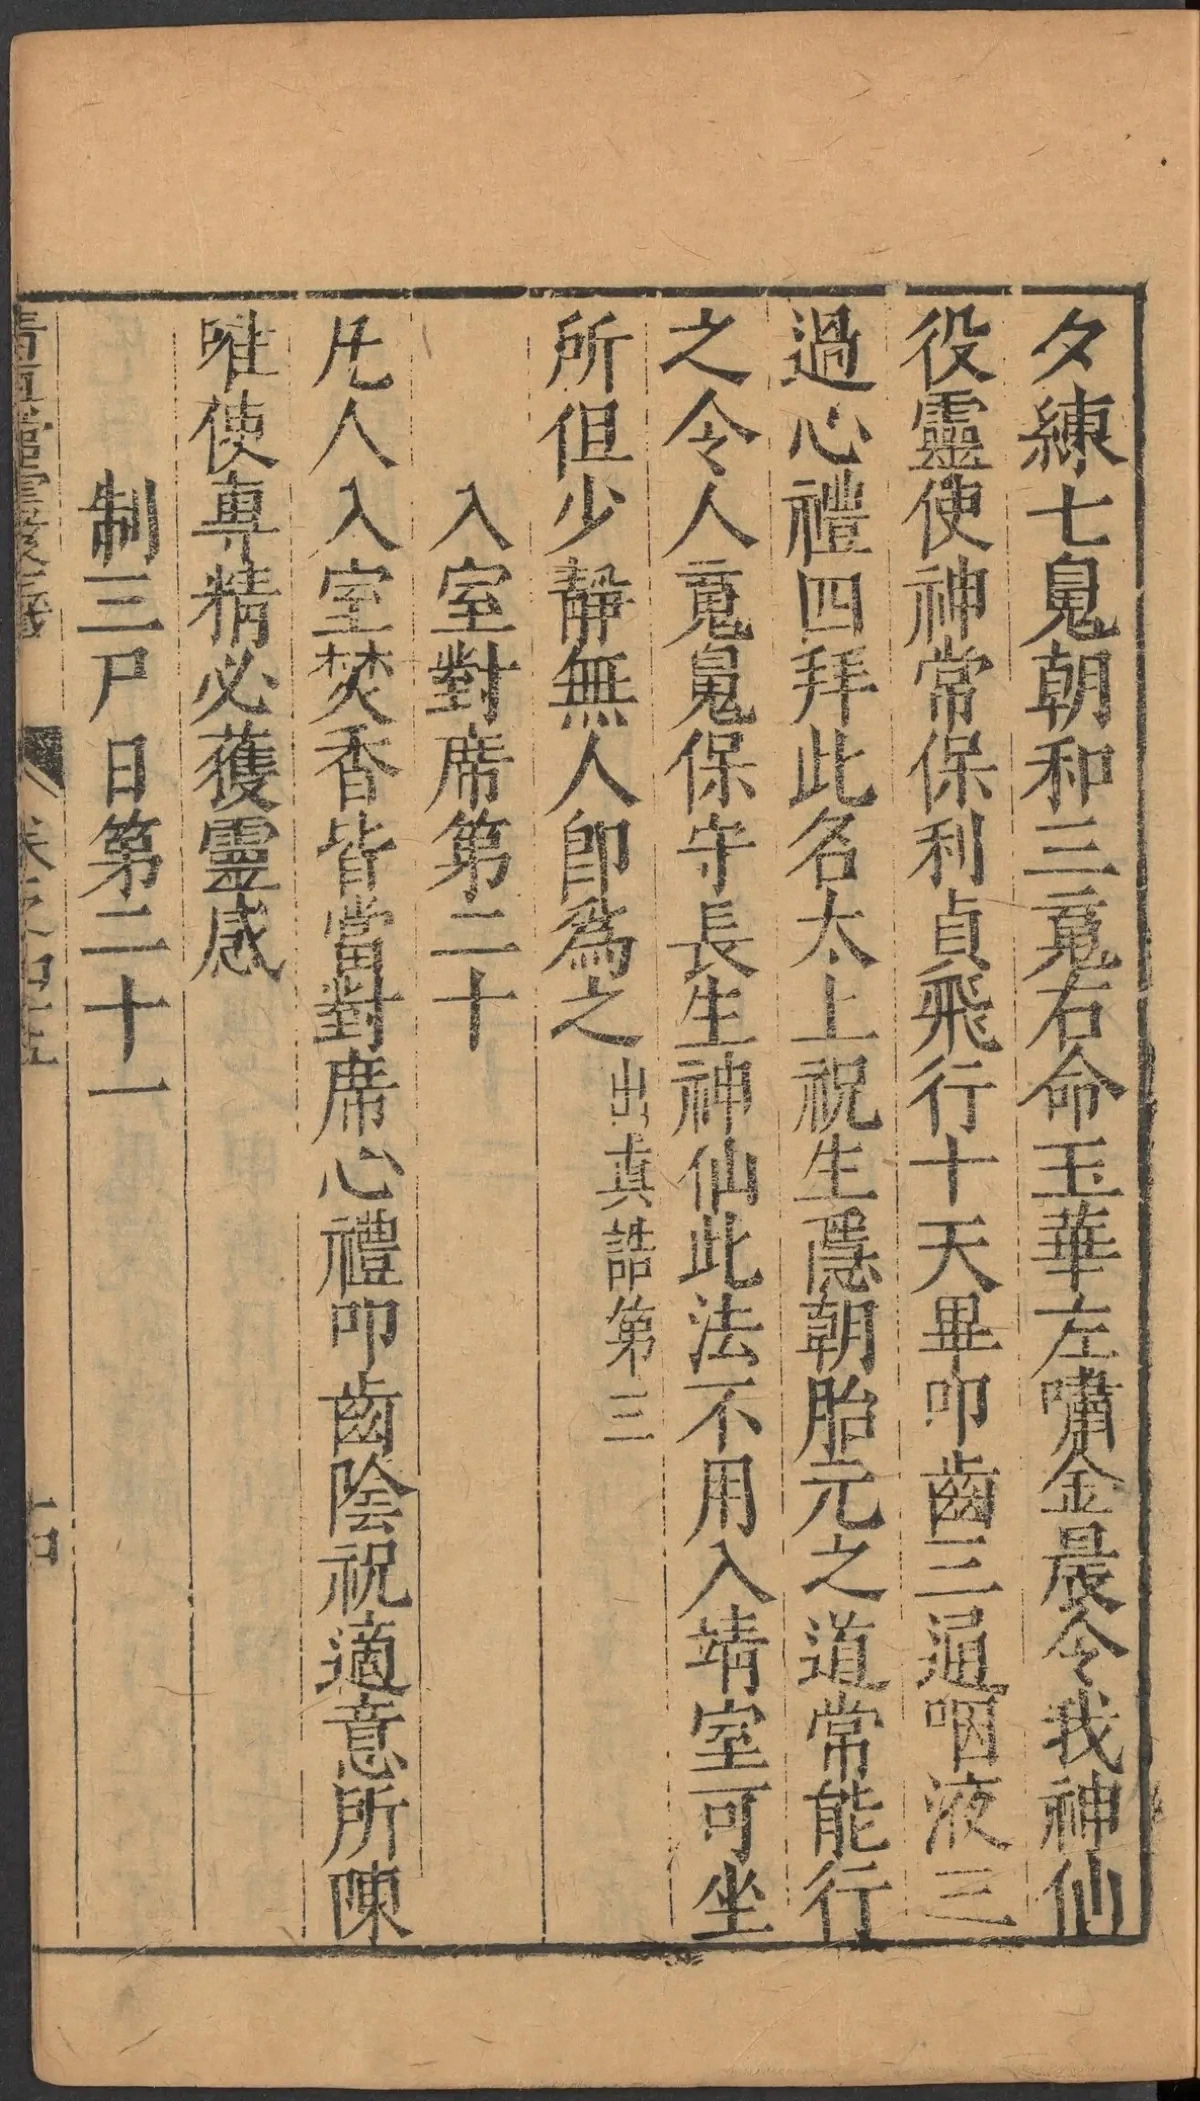 夕練七鬼朝和三䰟右命玉華左嘯金晨令我神仙
役靈使神常保利貞飛行十天畢叩齒三通咽液三
過心禮四拜此名太上祝生隱朝胎元之道常能行
之令人䰟鬼保守長生神仙此法不用入靖室可坐
所但少靜無人卽爲之出真誥第三
入室對席第二十
凡人入室焚香皆當對席心禮叩齒陰祝適意所陳
唯使專精必獲靈感
制三尸日第二十一
十四